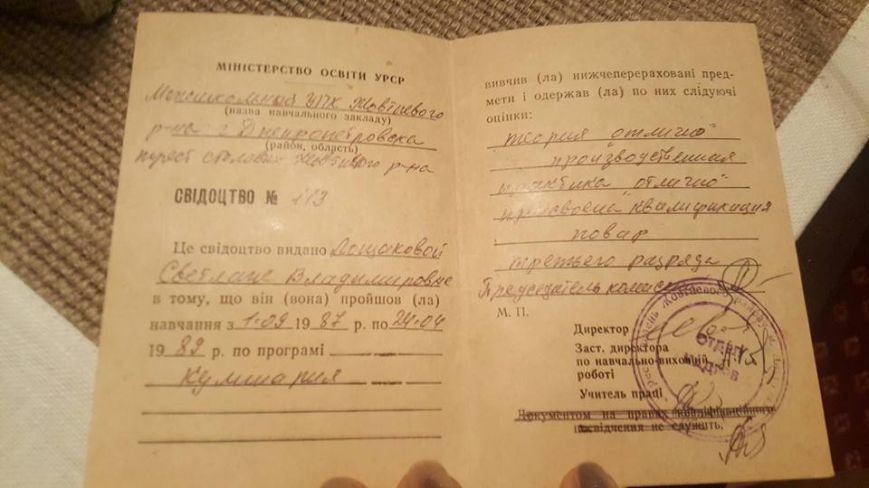 МІНІСТЕРСТВО ОСВІТИ УРСР
Межшкольной УПК Жовтневого
(назва навчального закладу)
р-на г Днепропетровска
(район, область)
трест столовых Жовтневого р-на
СВІДОЦТВО № 113
Це свідоцтво видано Лощаковой
Светлане Владимировне
в тому, що він (вона) пройшов (ла)
навчання з 1.09 1987 р. по 24.04
1989 р. по програмі
кулинария
вивчив (ла) нижчеперераховані пред-
мети і одержав (ла) по них слідуючі
оцінки:
теория "отлично"
производственная
практика "отлично"
присвоена квалификация
повар
третьего разряда
Председатель комиссии
М. П.
Директор
Заст. директора
по навчально-виховній
роботі
Учитель праці
Документом на правах кваліфікаційного
посвідчення не служить.
Отдел
кадров